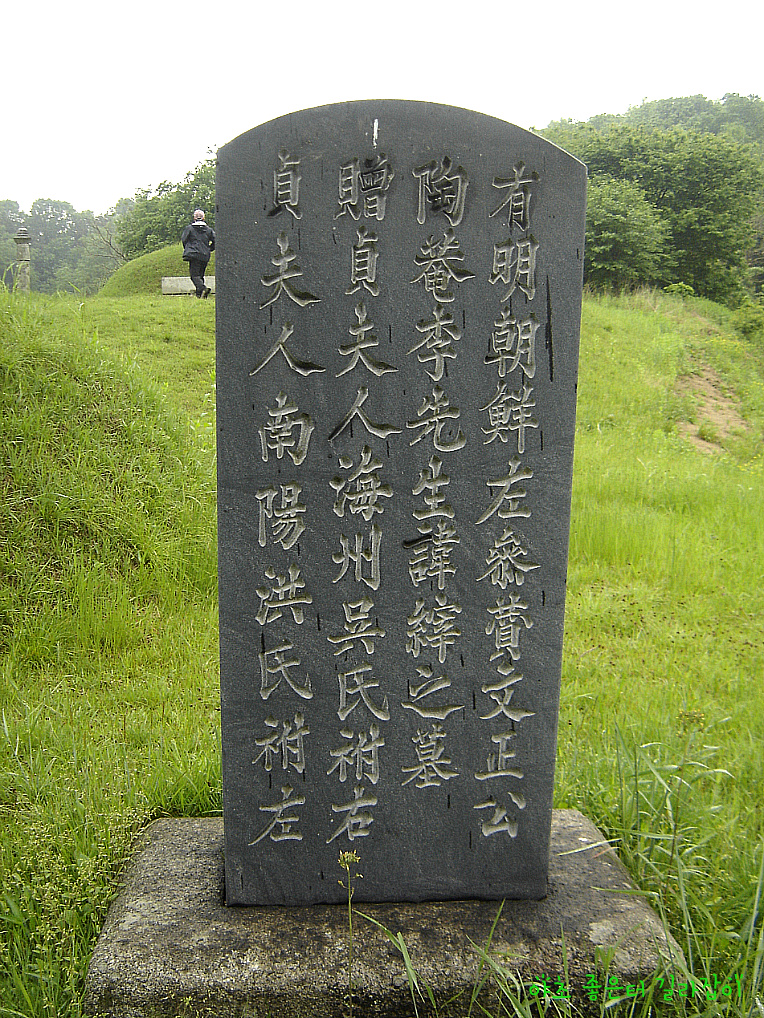 有明朝鮮左叅贊文正公
陶菴李先生諱縡之墓
贈貞夫人海州吳氏祔右
貞夫人南陽洪氏祔左
야초 좋은터 길라잡이